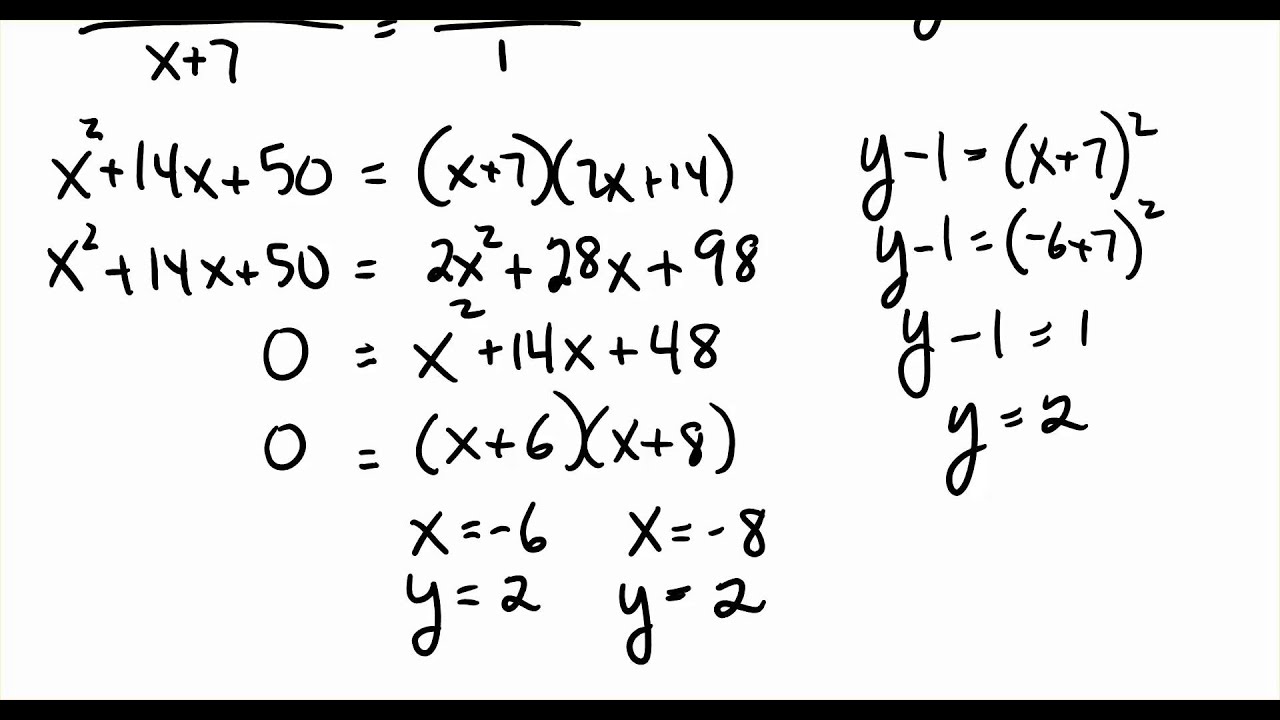 x+7 = 1
x²+14x+50 = (x+7)(2x+14)
x²+14x+50 = 2x²+28x+98
0 = x²+14x+48
0 = (x+6)(x+8)
x=-6 x=-8
y=2 y=2
y-1=(x+7)²
y-1=(-6+7)²
y-1=1
y=2